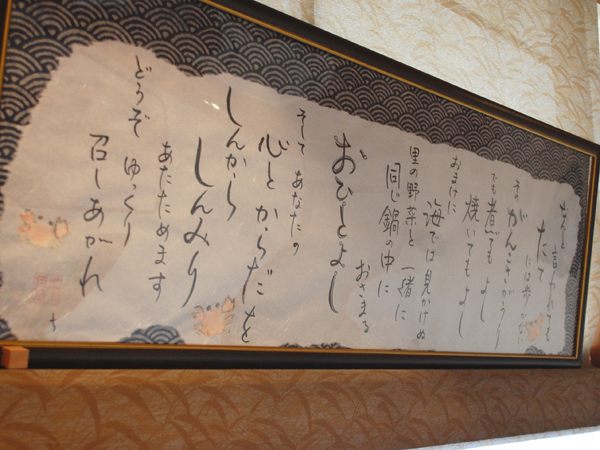 なんと 言われても
たて には歩かない
その がんこさがうり
でも 煮ても よし
焼いてもよし
おまけに
海では見かけぬ
里の野菜と 一緒に
同じ鍋の中に
おさまる
おひとよし
そして あなたの
心と からだを
しんから
しんみり
あたためます
どうぞ ゆっくり
召しあがれ